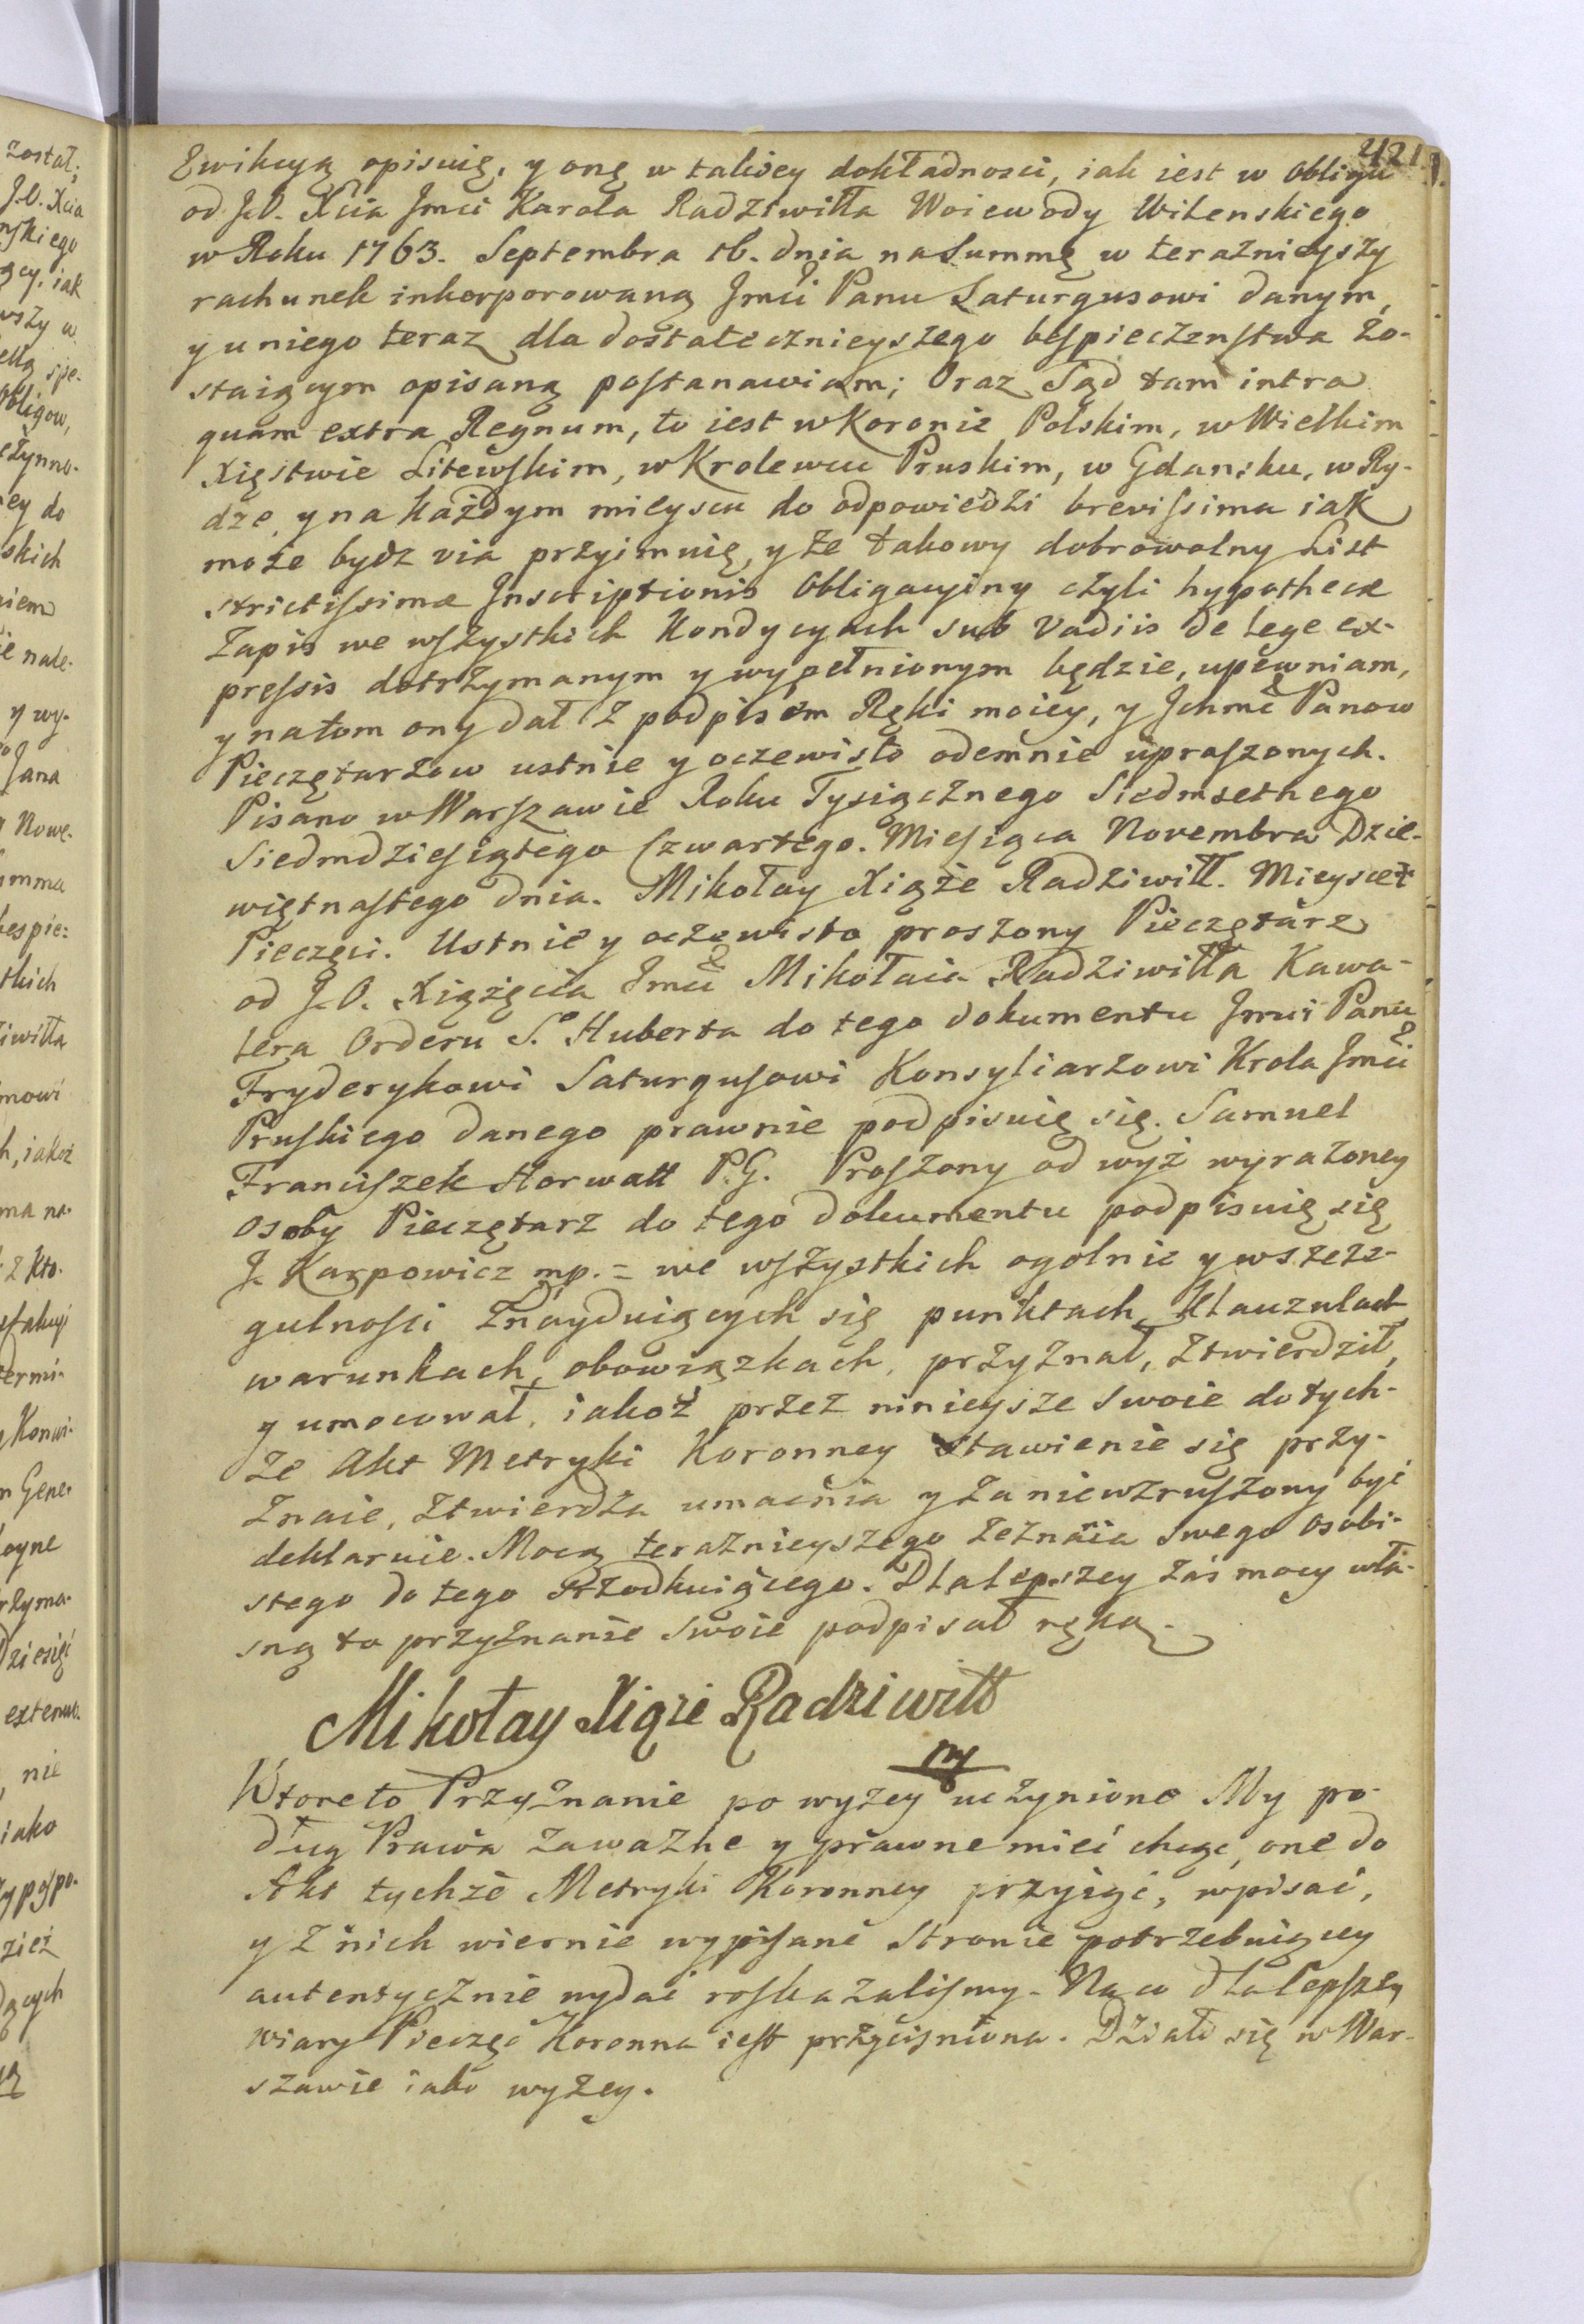 421
Ewikcyą opisuię, y onę w takiey dokładnosci, iak iest w Obligu
od J.O. Xcia Jmci Karola Radziwiłła Woiewody Wilenskiego
w Roku 1763. Septembra 16. dnia na Summę w teraznieyszy
rachunek inkorporowaną Jmci Panu Saturgusowi danym,
y u niego teraz dla dostatecznieyszego bespieczenstwa zo-
staiącym opisaną postanawiam; Oraz Sąd tam intra
quam extra Regnum, to iest w Koronie Polskim, w Wielkim
Xięstwie Litewskim, w Krolewcu Pruskim, w Gdansku, w Ry-
dze, y na każdym mieyscu do odpowiedzi brevissima iak
może bydz via przyimuię, y że takowy dobrowolny List
strictissimæ Inscriptionis Obligacyiny czyli hypothecæ
Zapis we wszystkich Kondycyach sub Vadiis de lege ex-
pressis dotrzymanym y wypełnionym będzie, upewniam,
y na tom ony dał z podpisem Ręki moiey, y Ichmć Panow
Pieczętarzow ustnie y oczewisto odemnie uproszonych.
Pisano w Warszawie Roku Tysiącznego Siedmsetnego
Siedmdziesiątego Czwartego. Miesiąca Novembra Dzie-
więtnastego dnia. Mikołay Xiąże Radziwiłł. Mieysce
Pieczęci. Ustnie y oczewisto proszony Pieczętarz
od J.O. Xiążęcia Jmci Mikołaia Radziwiłła Kawa-
lera Orderu S. Huberta do tego dokumentu Jmci Panu
Fryderykowi Saturgusowi Konsyliarzowi Krola Jmci
Pruskiego danego prawnie podpisuię się. Samuel
Franciszek Horwatt P.G. Proszony od wyż wyrażoney
osoby Pieczętarz do tego dokumentu podpisuię się
J. Karpowicz mp. = we wszystkich ogolnie y w szcze-
gulnosci znayduiących się punktach, Klauzulach
warunkach, obowiązkach, przyznał, ztwierdził,
y umocował, iakoż przez ninieysze swoie do tych-
że Akt Metryki Koronney stawienie się przy-
znaie, ztwierdza umacnia y za niewzruszony być
deklaruie. Mocą teraznieyszego zeznania swego osobi-
stego do tego szrodkuiącego. Dla lepszey zaś mocy wła-
sną to przyznanie swoie podpisał ręką.
Mikołay Xiąże Radziwiłł
mp
Ktore to Przyznanie powyzey uczynione My po-
dług Prawa za ważne y prawne mieć chcąc, one do
Akt tychże Metryki Koronney przyiąć, wpisać,
y z nich wiernie wypisane Stronie potrzebuiącey
autentycznie wydać roskazalismy. Na co dla lepszey
wiary Pieczęć Koronna iest przycisniona. Działo się w War-
szawie iako wyzey.